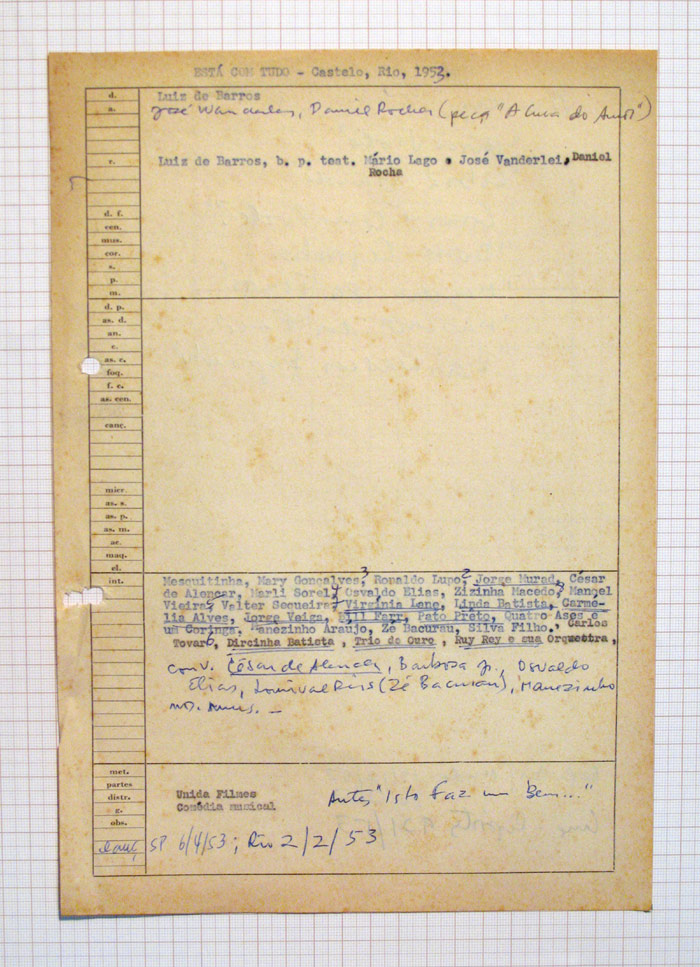 ESTÁ COM TUDO - Castelo, Rio, 1952.
d. Luiz de Barros
a. José Wanderley, Daniel Rocha (peça "A Cura do Amor")
r. Luiz de Barros, b. p. teat. Mário Lago e José Vanderlei, Daniel
Rocha
d. f.
cen.
mus.
cor.
s.
p.
m.
d. p.
as. d.
an.
c.
as. c.
foq.
f. c.
as. cen.
canç.
micr.
as. s.
as. p.
as. m.
ac.
maq.
el.
int. Mesquitinha, Mary Gonçalves, Ronaldo Lupo, Jorge Murad, César
de Alencar, Marli Sorel, Osvaldo Elias, Zizinha Macedo, Manoel
Vieira, Valter Sequeira, Virginia Lane, Linda Batista, Carme-
lia Alves, Jorge Veiga, Bill Farr, Pato Preto, Quatro Ases e
um Coringa, Manezinho Araujo, Zé Bacurau, Silva Filho, Carlos
Tovar, Dircinha Batista, Trio de Ouro, Ruy Rey e sua Orquestra,
conv. César de Alencar, Barbosa Jr., Osvaldo
Elias, (Zé Bacurau), Manezinho
nos. mus. —
met.
partes
distr. Unida Filmes Antes "Isto Faz um Bem..."
g. Comédia musical
obs.
lanç. SP 6/4/53; Rio 2/2/53